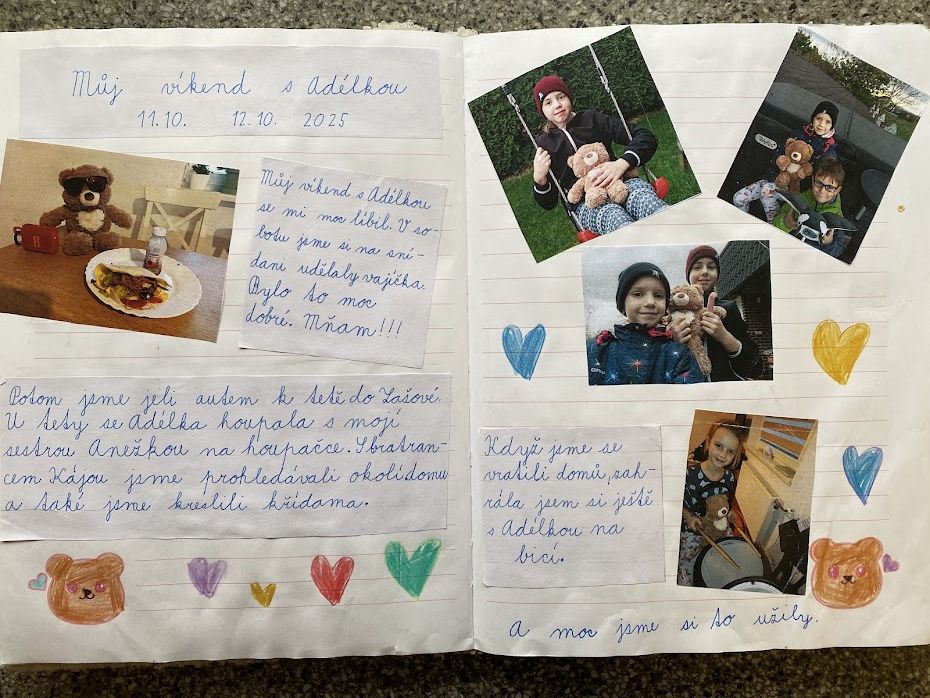 Můj víkend s Adélkou
11.10. 12.10. 2025
B
Můj víkend s Adélkou
se mi moc líbil. V so-
botu jsme si na sní-
dani udělaly vajíčka.
Bylo to moc
dobré. Mňam!!!
Potom jsme jeli autem k tetě do Zašové.
U tety se Adélka houpala s mojí
sestrou Anežkou na houpačce. S bratran-
cem Kájou jsme prohledávali okolí domu
a také jsme kreslili křídama.
Když jsme se
vrátili domů, zah-
rála jsem si ještě
s Adélkou na
bicí.
A moc jsme si to užily.